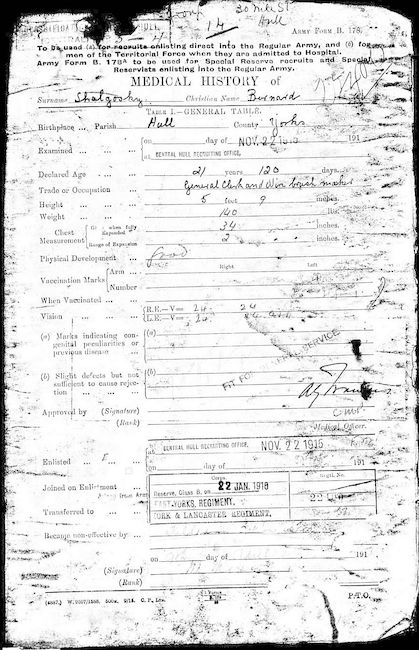 14
30 Mill St
Hull
ARMY FORM B. 178.
To be used (a) for recruits enlisting direct into the Regular Army, and (b) for
men of the Territorial Force when they are admitted to Hospital.
Army Form B. 178A to be used for Special Reserve recruits and Special
Reservists enlisting into the Regular Army.
MEDICAL HISTORY of
Surname Shalgosky. Christian Name Bernard
TABLE I.—GENERAL TABLE.
Birthplace ... Parish Hull County Yorks
Examined ... on day of NOV 22 1915
at CENTRAL HULL RECRUITING OFFICE.
Declared Age ... 21 years 120 days
Trade or Occupation ... General Clerk and Wire brush maker
Height ... 5 feet 9 inches.
Weight ... 140 lbs.
Chest Measurement { Girth when fully Expanded 34 inches.
Range of Expansion 2 inches.
Physical Development ... Good
Right Left
Vaccination Marks { Arm ...
Number
When Vaccinated ...
Vision ... { R.E.—V= 24 24
L.E.—V= 24 24
(a) Marks indicating congenital peculiarities or previous disease ... (a)
FIT FOR SERVICE
(b) Slight defects but not sufficient to cause rejection ... (b)
Approved by (Signature)
(Rank) Medical Officer.
CENTRAL HULL RECRUITING OFFICE. NOV 22 1915
Enlisted ... at
on day of 191
Joined on Enlistment Corps Regtl. No.
22 JAN. 1916
Army Reserve, Class B. on
EAST YORKS. REGIMENT.
Transferred to ... YORK & LANCASTER REGIMENT.
Became non-effective by ...
on day of 191
(Signature)
(Rank)
P.T.O.